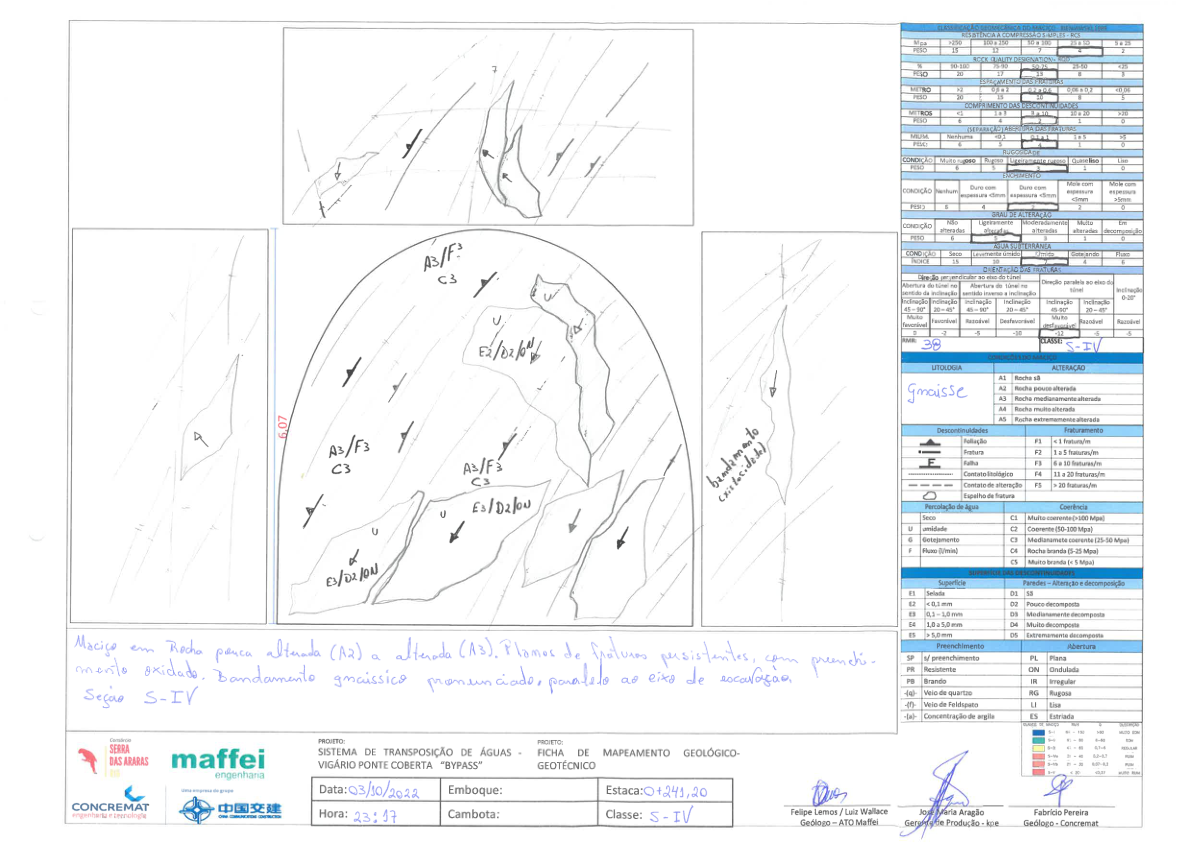 A3/F3
C3
U
U
E2/D2/ON
6,07
A3/F3
C3
A3/F3
C3
U
E3/D2/ON
U
E3/D2/ON
bandamento
Maciço em Rocha pouca alterada (A2) a alterada (A3). Planos de fraturas persistentes, com preenchi-
mento oxidado. Bandamento gnáissico pronunciado, paralelo ao eixo de escavação.
Seção S-IV
RESISTÊNCIA A COMPRESSÃO SIMPLES - RCS
Mpa >250 100 a 250 50 a 100 25 a 50 5 a 25
PESO 15 12 7 4 2
ROCK QUALITY DESIGNATION - RQD
% 90-100 75-90 50-75 25-50 <25
PESO 20 17 13 8 3
ESPAÇAMENTO DAS FRATURAS
METRO >2 0,6 a 2 0,2 a 0,6 0,06 a 0,2 <0,06
PESO 20 15 10 8 5
COMPRIMENTO DAS DESCONTINUIDADES
METROS <1 1 a 3 3 a 10 10 a 20 >20
PESO 6 4 2 1 0
(SEPARAÇÃO) ABERTURA DAS FRATURAS
MILIM. Nenhuma <0,1 0,1 a 1 1 a 5 >5
PESO 6 5 4 1 0
RUGOSIDADE
CONDIÇÃO Muito rugoso Rugoso Ligeiramente rugoso Quase liso Liso
PESO 6 5 3 1 0
ENCHIMENTO
CONDIÇÃO Nenhum Duro com espessura <5mm Duro com espessura Mole com espessura <5mm Mole com espessura >5mm
PESO 6 4 2 2 0
GRAU DE ALTERAÇÃO
CONDIÇÃO Não alteradas Ligeiramente alteradas Moderadamente alteradas Muito alteradas Em decomposição
PESO 6 5 3 1 0
ÁGUA SUBTERRÂNEA
CONDIÇÃO Seco Levemente úmido Úmido Gotejando Fluxo
ÍNDICE 15 10 7 4
ORIENTAÇÃO DAS FRATURAS
Direção perpendicular ao eixo do túnel
Abertura do túnel no sentido da inclinação Abertura do túnel no sentido inverso a inclinação Direção paralela ao eixo do túnel Inclinação 0-20°
Inclinação 45 – 90° Inclinação 20 – 45° Inclinação 45 – 90° Inclinação 20 – 45° Inclinação 45-90° Inclinação 20 – 45°
Muito favorável Favorável Razoável Desfavorável Muito desfavorável Razoável Razoável
0 -2 -5 -10 -12 -5 -5
RMR: 38 CLASSE: S-IV
CONDIÇÕES DO MACIÇO
LITOLOGIA ALTERAÇÃO
Gnaisse
A1 Rocha sã
A2 Rocha pouco alterada
A3 Rocha medianamente alterada
A4 Rocha muito alterada
A5 Rocha extremamente alterada
Descontinuidades Fraturamento
Foliação F1 < 1 fratura/m
Fratura F2 1 a 5 fraturas/m
F Falha F3 6 a 10 fraturas/m
Contato litológico F4 11 a 20 fraturas/m
Contato de alteração F5 > 20 fraturas/m
Espelho de fratura
Percolação de água Coerência
Seco C1 Muito coerente (>100 Mpa)
U umidade C2 Coerente (50-100 Mpa)
G Gotejamento C3 Medianamete coerente (25-50 Mpa)
F Fluxo (l/min) C4 Rocha branda (5-25 Mpa)
C5 Muito branda (< 5 Mpa)
Superfície Paredes – Alteração e decomposição
E1 Selada D1 Sã
E2 < 0,1 mm D2 Pouco decomposta
E3 0,1 – 1,0 mm D3 Medianamente decomposta
E4 1,0 a 5,0 mm D4 Muito decomposta
E5 > 5,0 mm D5 Extremamente decomposta
Preenchimento Abertura
SP s/ preenchimento PL Plana
PR Resistente ON Ondulada
PB Brando IR Irregular
-(q)- Veio de quartzo RG Rugosa
-(f)- Veio de Feldspato LI Lisa
-(a)- Concentração de argila ES Estriada
Consórcio
SERRA
DAS ARARAS
maffei
engenharia
CONCREMAT
engenharia e tecnologia
uma empresa do grupo
中国交建
CHINA COMMUNICATIONS CONSTRUCTION
PROJETO:
SISTEMA DE TRANSPOSIÇÃO DE ÁGUAS -
VIGÁRIO A CALHA CE
PROJETO:
FICHA DE MAPEAMENTO GEOLÓGICO-
GEOTÉCNICO
Data: 03/10/2022 Emboque: Estaca: 0+241,20
Hora: 23:17 Cambota: Classe: S-IV
Felipe Lemos / Luiz Wallace
Geólogo – ATO Maffei
José Maria Aragão
Gerente de Produção - kpe
Fabrício Pereira
Geólogo - Concremat